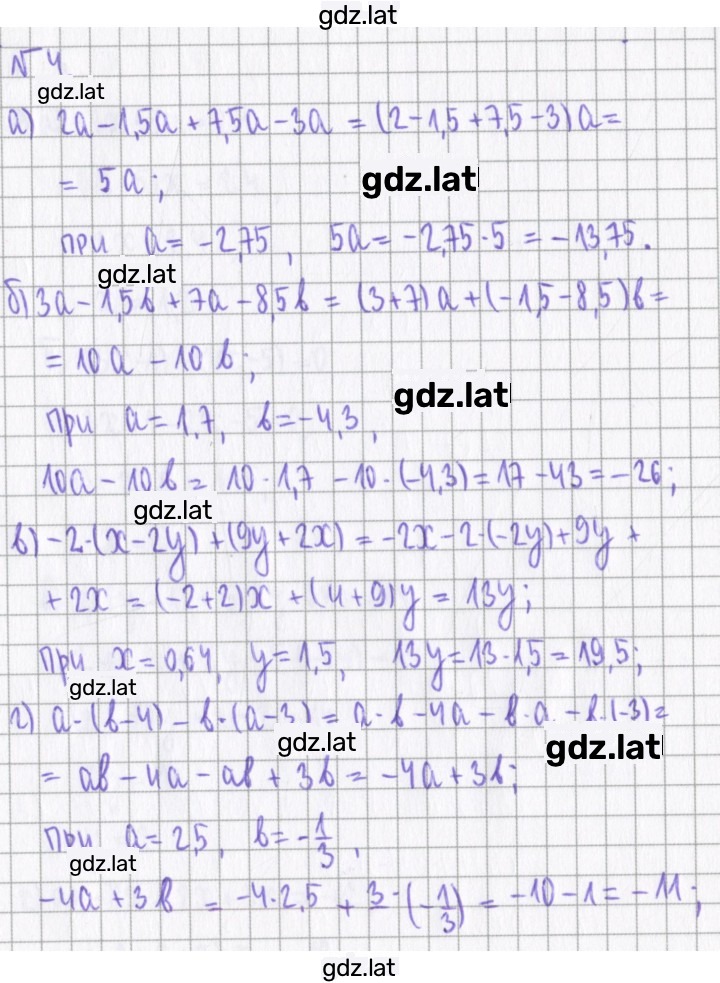 gdz.lat
№ 4
gdz.lat
а) 2a - 1,5a + 7,5a - 3a = (2 - 1,5 + 7,5 - 3)a =
= 5a;
gdz.lat
при a = -2,75, 5a = -2,75·5 = -13,75.
gdz.lat
б) 3a - 1,5b + 7a - 8,5b = (3+7)a + (-1,5 - 8,5)b =
= 10a - 10b;
gdz.lat
при a = 1,7, b = -4,3,
10a - 10b = 10·1,7 - 10·(-4,3) = 17 - 43 = -26;
gdz.lat
в) -2·(x - 2y) + (9y + 2x) = -2x - 2·(-2y) + 9y +
+ 2x = (-2+2)x + (4+9)y = 13y;
при x = 0,64, y = 1,5, 13y = 13·1,5 = 19,5;
gdz.lat
г) a·(b-4) - b·(a-3) = a·b - 4a - b·a - b·(-3) =
gdz.lat
gdz.lat
= ab - 4a - ab + 3b = -4a + 3b;
при a = 2,5, b = -1/3,
gdz.lat
-4a + 3b = -4·2,5 + 3·(-1/3) = -10 - 1 = -11;
gdz.lat